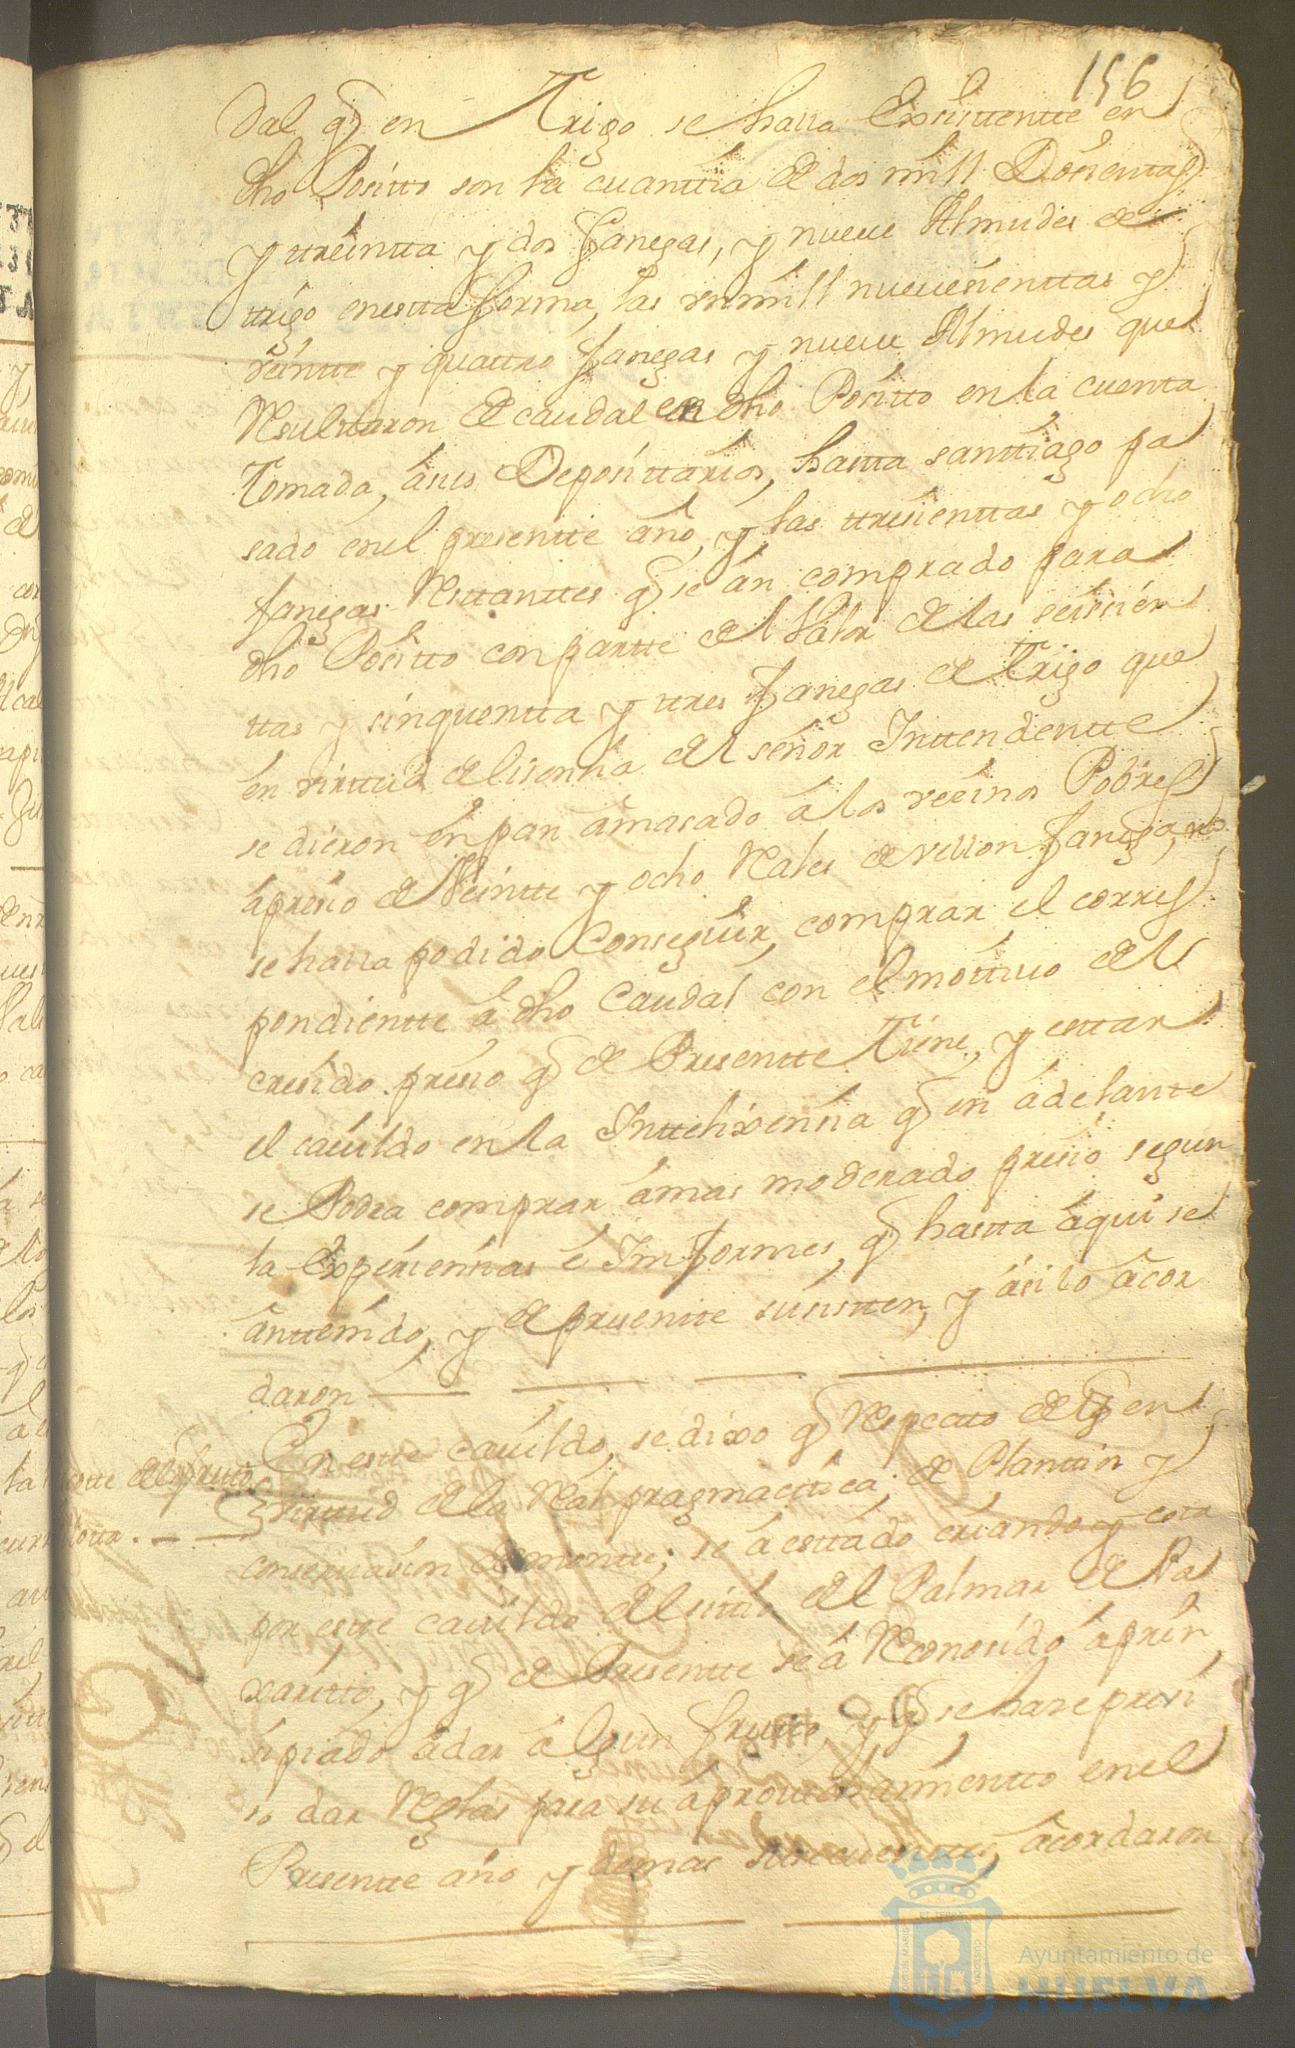 156
dal q̃ en Trigo se halla Existtentte en
dho Positto son la cuanttia de dos mill Dosientas
y ttreintta y dos fanegas, y nueve Almudes de
ttrigo enestta forma, las un mill nuevesienttas y
veintte y quattro fanegas y nueve Almudes que
Resulttaron de caudal en dho Positto en la cuenta
Tomada, ásus Deposittarios, hastta santtiago pa
sado enel presentte año, y las ttresienttas y ocho
fanegas Restanttes q̃ se án comprado para
dho Positto con partte del Valor de las seisien
ttas y sinquentta y ttres fanegas de Trigo que
en virttud de lisensia del señor Inttendentte
se dieron en pan amasado á los vesinos Pobres
ápresio de Veintte y ocho Rales de vellon fanega, no
se halla podido Conseguir, comprar el corres
pondientte á dho Caudal con el mottivo del
cresido presio q̃ de Presentte Tiene, y esttar
el cavildo en la Inttelixensia q̃ en ádelante
se Podra comprar ámas moderado presio segun
la Experiensias é Imformes, q̃ hastta áqui se
án ttenido, y de presentte susistten, y ási lo ácor
daron
En estte cavildo, se dixo q̃ Respectto de q̃ en
virttud de la Real pragmacttica, de Planttin y
conservasion de montte, se á esttado criando y
por estte cavildo el sittio del Palmar de Pa
xaritto, y q̃ de Presentte se á Reconosido á prin
sipiado ádar álgun frutto, y q̃ se hase presi
so dar Reglas para su áprovechamientto enel
Presentte año y demas susecuenttes, ácordaron
Ayuntamiento de
HUELVA